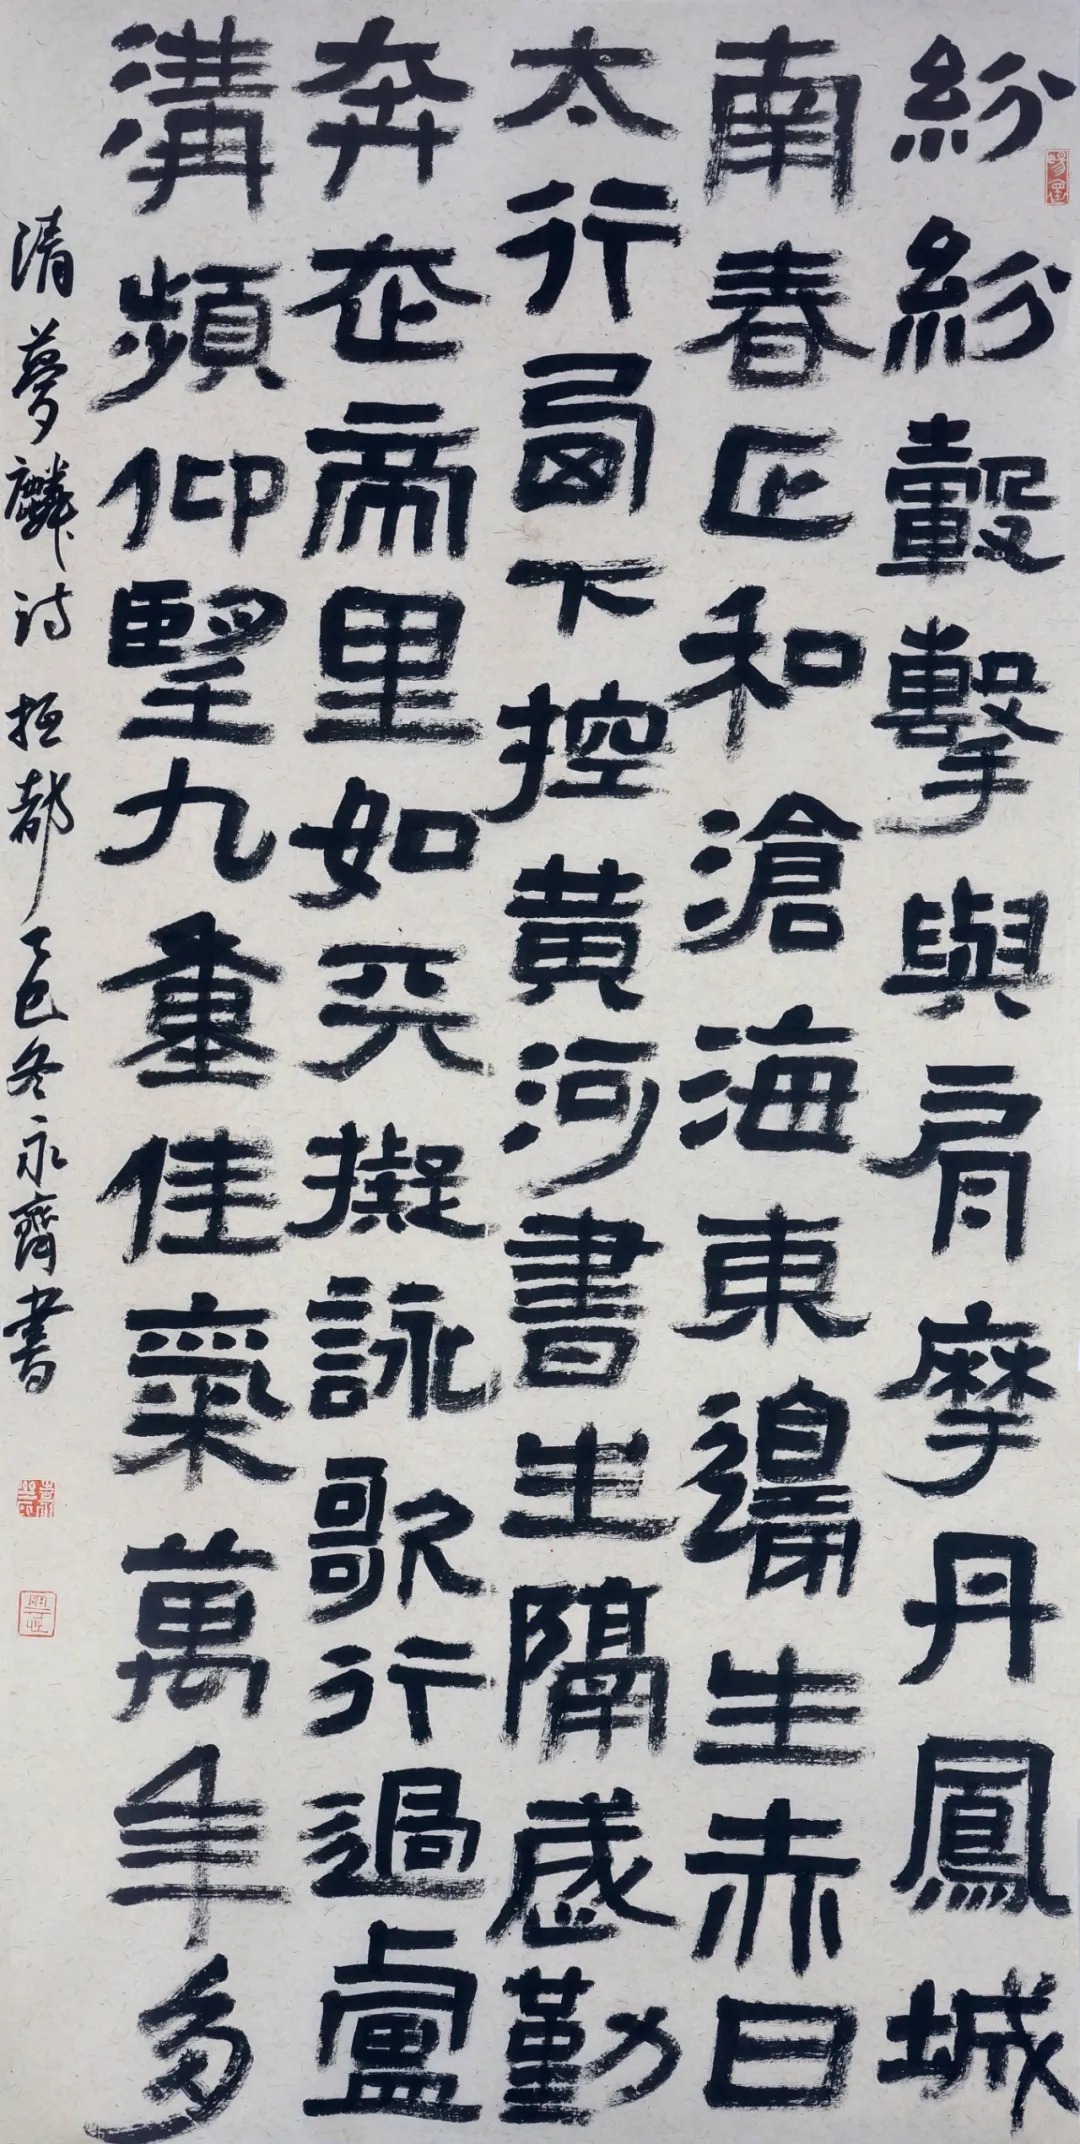 紛紛轂擊與肩摩丹鳳城
南春正和滄海東邊生赤日
太行西下控黃河書生隔歲勤
奔走帝里如天擬詠歌行過盧
溝頻仰望九重佳氣萬年多
清夢麟詩抵都乙巳冬永齊書